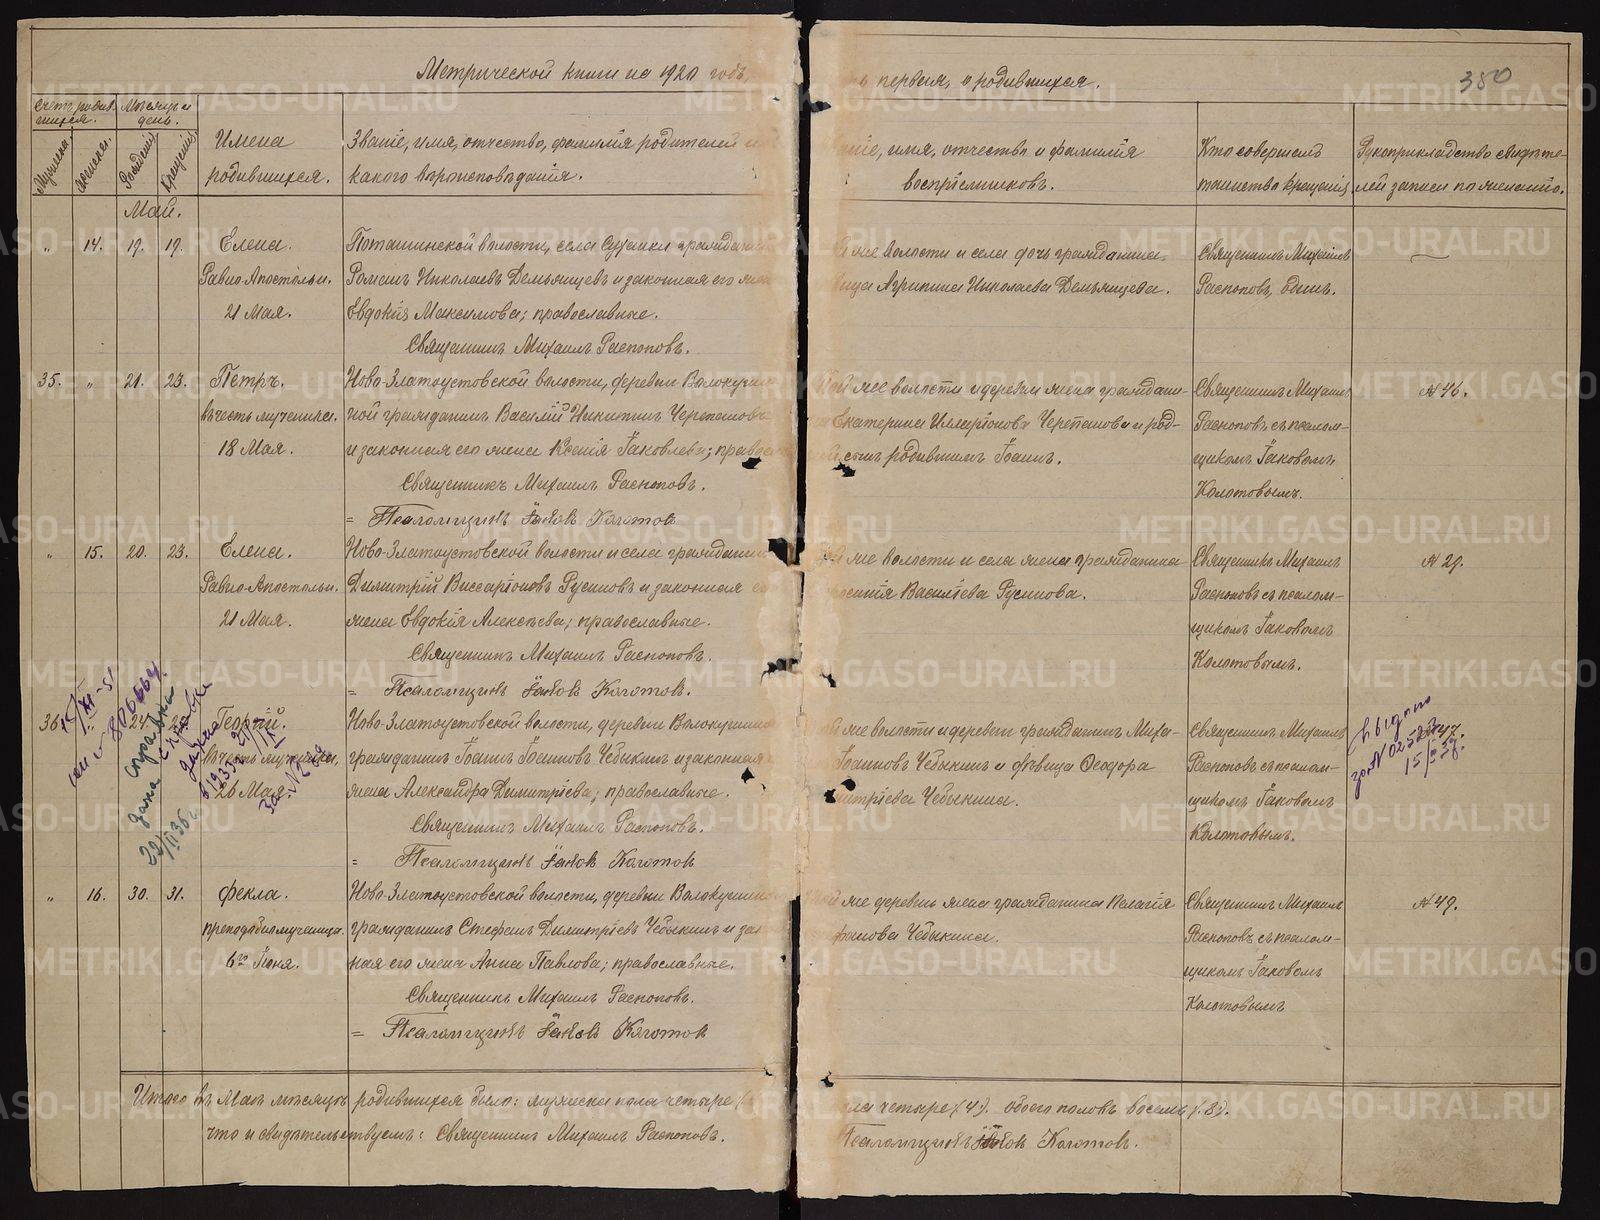 Метрической книги на 1920 годъ,
ь первая, о родившихся.
380
Счетъ родив-
шихся.
Мѣсяцъ и
день.
Мужеска.
Женска.
Рожденія
Крещенія.
Имена
родившихся.
Званіе, имя, отчество, фамилія родителей и
какого вѣроисповѣданія.
ніе, имя, отчество и фамилія
воспріемниковъ.
Кто совершалъ
таинство крещенія
Рукоприкладство свидѣте-
лей записи по желанію.
Май.
„ 14. 19. 19. Елена.
Равно-Апостольн.
21 Мая.
Поташинской волости, села Сухanки гражданинъ
Романъ Николаевъ Демьянцевъ и законная его жена
Евдокія Максимова; православные.
Священникъ Михаилъ Распоповъ.
же волости и села дочь гражданина
вица Агрипина Николаева Демьянцева.
Священникъ Михаилъ
Распоповъ, єдинъ.
35. „ 21. 23. Петръ.
въ честь мученика.
18 Мая.
Ново-Златоустовской волости, деревни Волокуши
ной гражданинъ Василій Никитинъ Черепановъ
и законная его жена Ксенія Іаковлева; правос
Священникъ Михаилъ Распоповъ.
= Псаломщикъ Іаковъ Колотовъ
той же волости и деревни жена граждани-
Екатерина Илларіонова Черепанова и род-
сынъ родившимъ Іоаннъ.
Священникъ Михаилъ
Распоповъ съ псалом-
щикомъ Іаковомъ
Колотовымъ.
№ 46.
„ 15. 20. 23. Елена.
Равно-Апостольн.
21 Мая.
Ново-Златоустовской волости и села гражданинъ
Димитрій Виссаріоновъ Русиновъ и законная е
жена Евдокія Алексѣева; православные.
Священникъ Михаилъ Распоповъ.
= Псаломщикъ Іаковъ Колотовъ.
й же волости и села жена гражданина
Василіева Русинова.
Священникъ Михаилъ
Распоповъ съ псалом-
щикомъ Іаковомъ
Колотовымъ.
№ 29.
36 24 Георгій.
въ честь мученика,
26 Мая.
Ново-Златоустовской волости, деревни Волокушиной
гражданинъ Іоаннъ Іоанновъ Чебыкинъ и законная
жена Александра Димитріева; православные.
Священникъ Михаилъ Распоповъ.
= Псаломщикъ Іаковъ Колотовъ
й же волости и деревни гражданинъ Миха-
Іоанновъ Чебыкинъ и дѣвица Ѳеодора
митріева Чебыкина.
Священникъ Михаилъ
Распоповъ съ псалом-
щикомъ Іаковомъ
Колотовымъ.
47.
справка
дана
22/II 36
Выдано
15/
„ 16. 30. 31. Фекла.
преподобномученица.
6го Іюня.
Ново-Златоустовской волости, деревни Волокушино
гражданинъ Стефанъ Димитріевъ Чебыкинъ и зак
ная его жена Анна Павлова; православные.
Священникъ Михаилъ Распоповъ.
= Псаломщикъ Іаковъ Колотовъ
й же деревни жена гражданина Пелагія
фанова Чебыкина.
Священникъ Михаилъ
Распоповъ съ псалом-
щикомъ Іаковомъ
Колотовымъ
№ 49.
Итого въ Маѣ мѣсяцѣ родившихся было: мужеска пола четыре (
ла четыре (4). обоего половъ восемь (8).
что и свидѣтельствуемъ: Священникъ Михаилъ Распоповъ.
Псаломщикъ Іаковъ Колотовъ.
METRIKI.GASO-URAL.RU